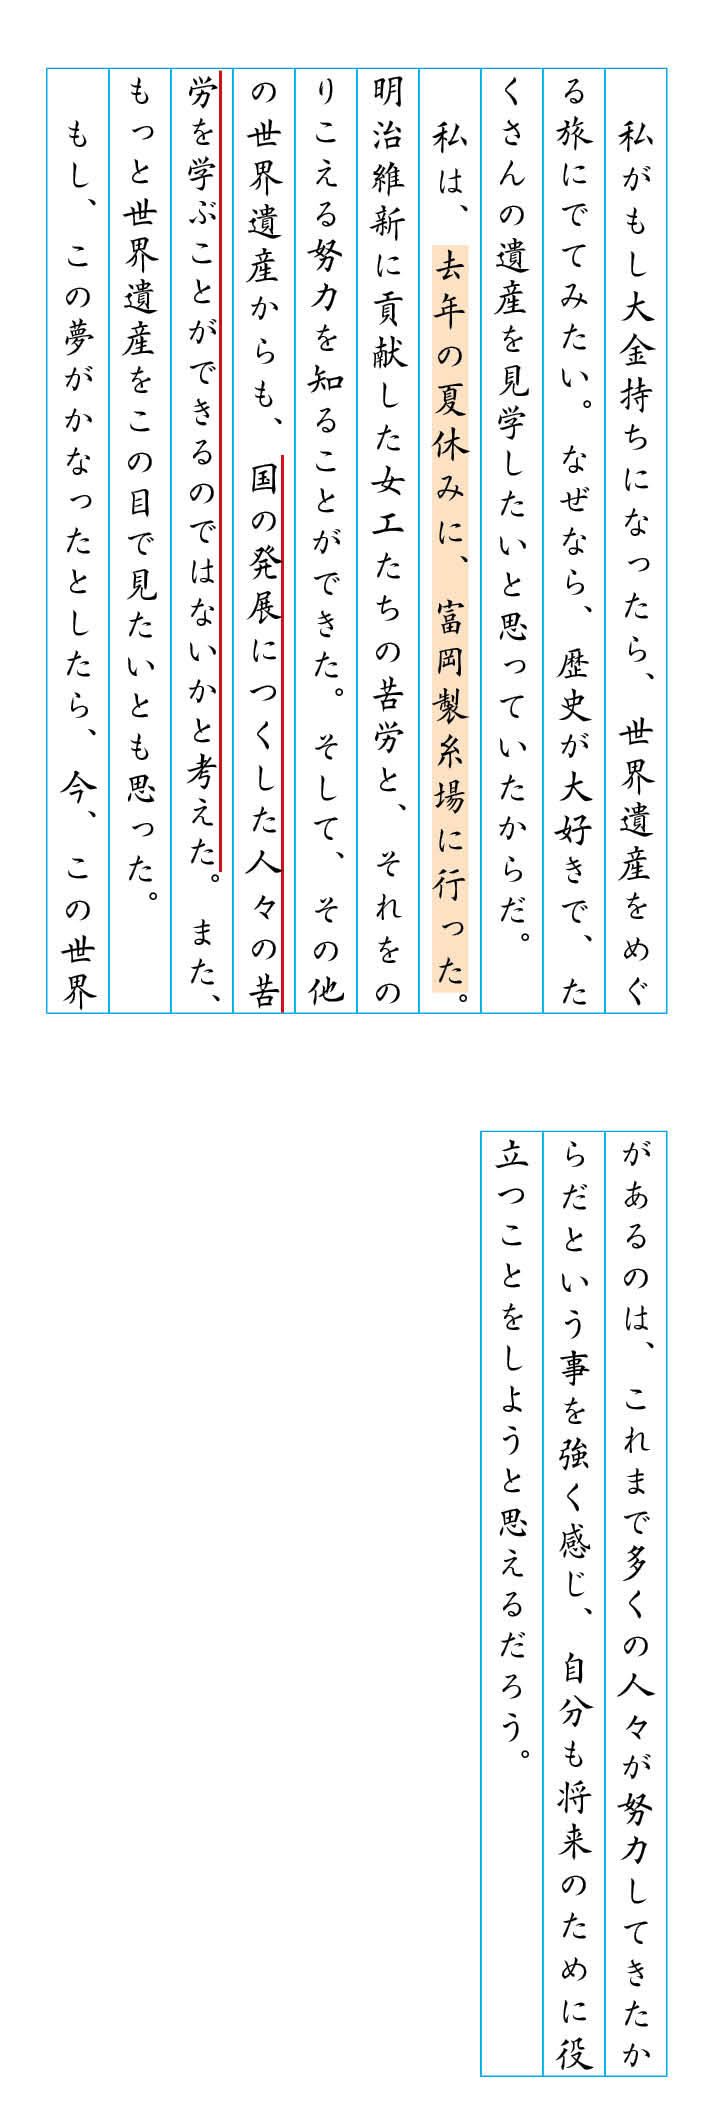 私がもし大金持ちになったら、世界遺産をめぐ
る旅にでてみたい。なぜなら、歴史が大好きで、た
くさんの遺産を見学したいと思っていたからだ。
　私は、去年の夏休みに、富岡製糸場に行った。
明治維新に貢献した女工たちの苦労と、それをの
りこえる努力を知ることができた。そして、その他
の世界遺産からも、国の発展につくした人々の苦
労を学ぶことができるのではないかと考えた。また、
もっと世界遺産をこの目で見たいとも思った。
　もし、この夢がかなったとしたら、今、この世界
があるのは、これまで多くの人々が努力してきたか
らだという事を強く感じ、自分も将来のために役
立つことをしようと思えるだろう。